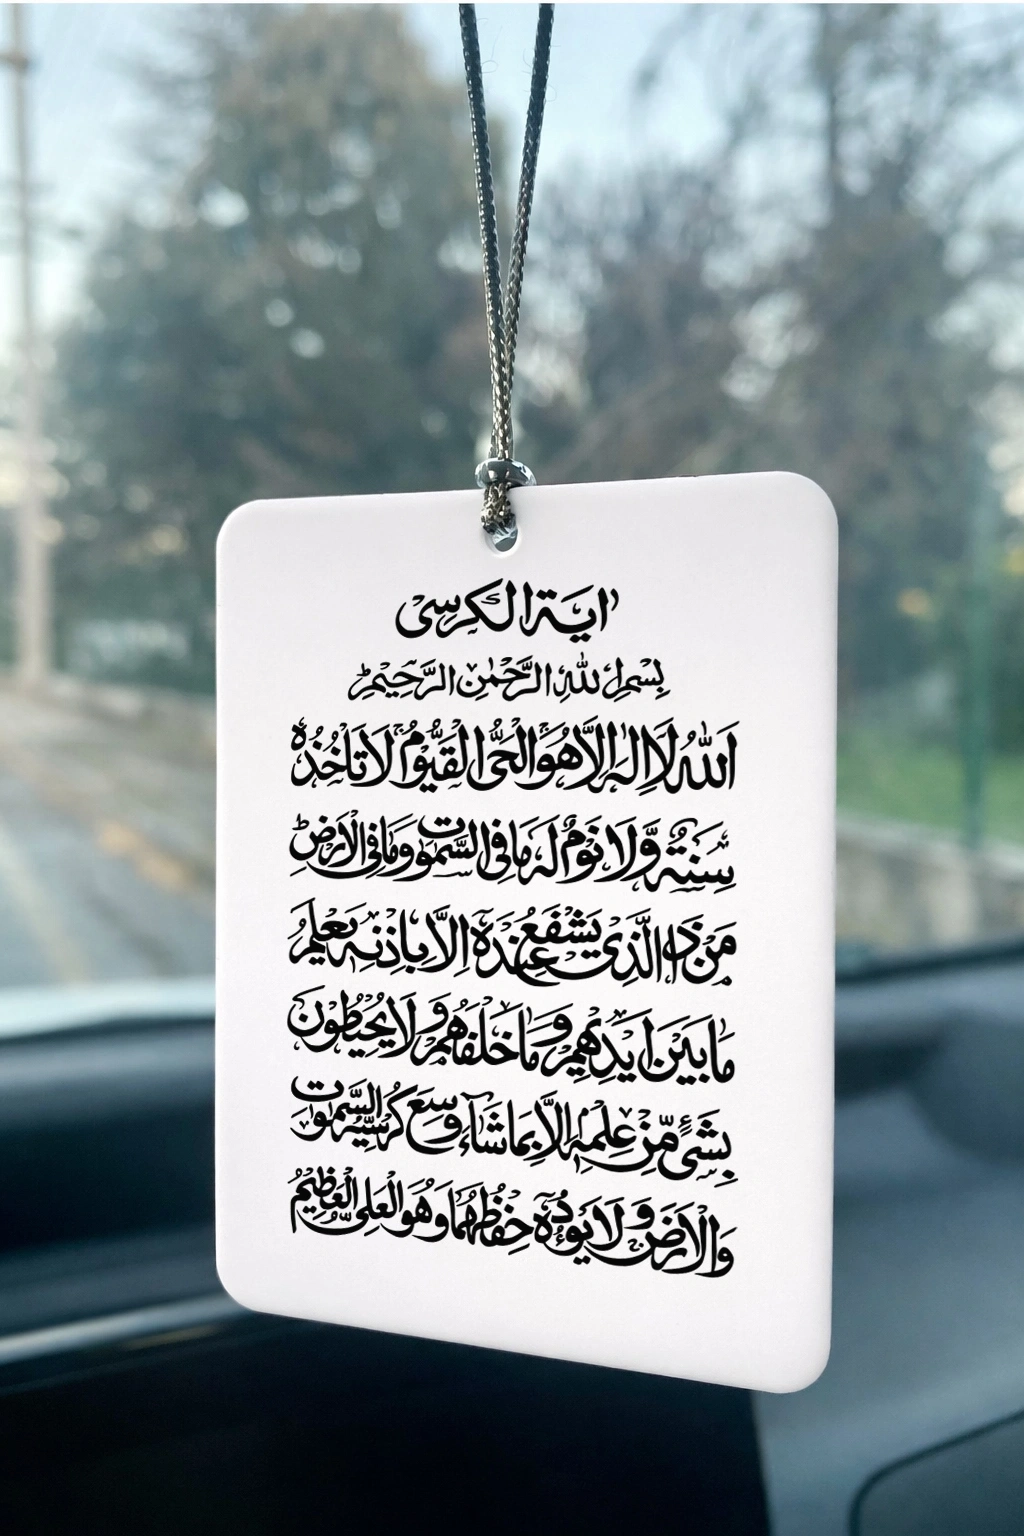 اية الكرسى
بِسْمِ اللهِ الرَّحْمٰنِ الرَّحِيْمِ
اَللّٰهُ لَا اِلٰهَ اِلَّا هُوَ الْحَىُّ الْقَيُّوْمُ لَا تَاْخُذُهٗ
سِنَةٌ وَّلَا نَوْمٌ لَهٗ مَا فِى السَّمٰوٰتِ وَمَا فِى الْاَرْضِ
مَنْ ذَا الَّذِىْ يَشْفَعُ عِنْدَهٗٓ اِلَّا بِاِذْنِهٖ يَعْلَمُ
مَا بَيْنَ اَيْدِيْهِمْ وَمَا خَلْفَهُمْ وَلَا يُحِيْطُوْنَ
بِشَىْءٍ مِّنْ عِلْمِهٖٓ اِلَّا بِمَا شَآءَ وَسِعَ كُرْسِيُّهُ السَّمٰوٰتِ
وَالْاَرْضَ وَلَا يَئُوْدُهٗ حِفْظُهُمَا وَهُوَ الْعَلِىُّ الْعَظِيْمُ